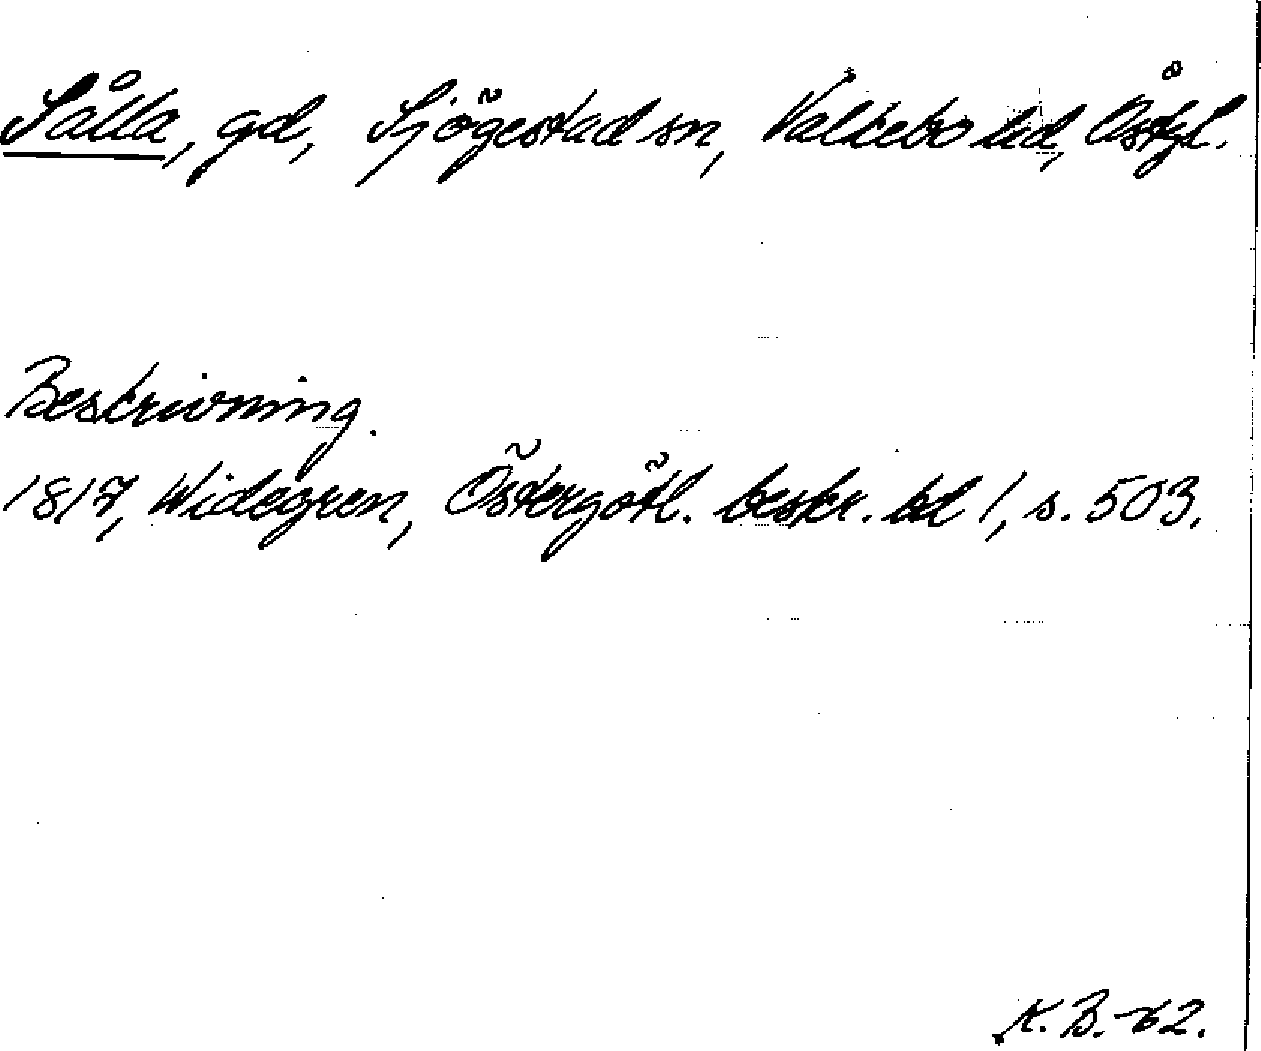 Sålla, gd, Sjögestad sn, Valkebo hd, Östgl.
Beskrivning.
1817, Widegren, Östergötl. beskr. bd 1, s. 503.
K.B.-62.